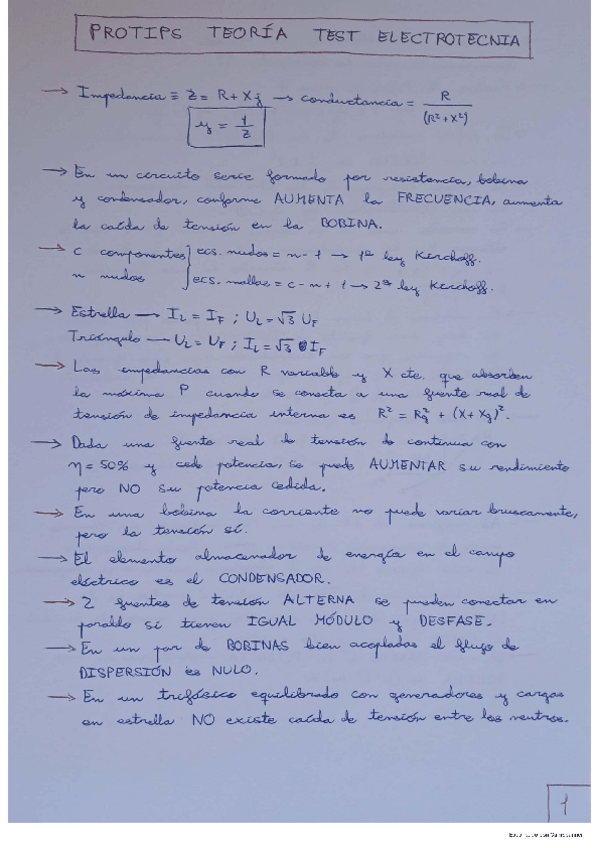 PROTIPS TEORÍA TEST ELECTROTECNIA
→ Impedancia ≡ Z = R + Xj → conductancia = R / (R² + X²)
y = 1/Z
→ En un circuito serie formado por resistencia, bobina
y condensador, conforme AUMENTA la FRECUENCIA, aumenta
la caída de tensión en la BOBINA.
→ c componentes } ecs. nudos = n - 1 → 1ª ley Kirchoff.
n nudos } ecs. mallas = c - n + 1 → 2ª ley Kirchoff.
→ Estrella → IL = IF ; UL = √3 UF
Triángulo → UL = UF ; IL = √3 IF
→ Las impedancias con R variable y X cte. que absorben
la máxima P cuando se conecta a una fuente real de
tensión de impedancia interna es R² = Rg² + (X + Xg)².
→ Dada una fuente real de tensión de continua con
η = 50% y cede potencia, se puede AUMENTAR su rendimiento
pero NO su potencia cedida.
→ En una bobina la corriente no puede variar bruscamente,
pero la tensión sí.
→ El elemento almacenador de energía en el campo
eléctrico es el CONDENSADOR.
→ 2 fuentes de tensión ALTERNA se pueden conectar en
paralelo si tienen IGUAL MÓDULO y DESFASE.
→ En un par de BOBINAS bien acopladas el flujo de
DISPERSIÓN es NULO.
→ En un trifásico equilibrado con generadores y cargas
en estrella NO existe caída de tensión entre los neutros.
1